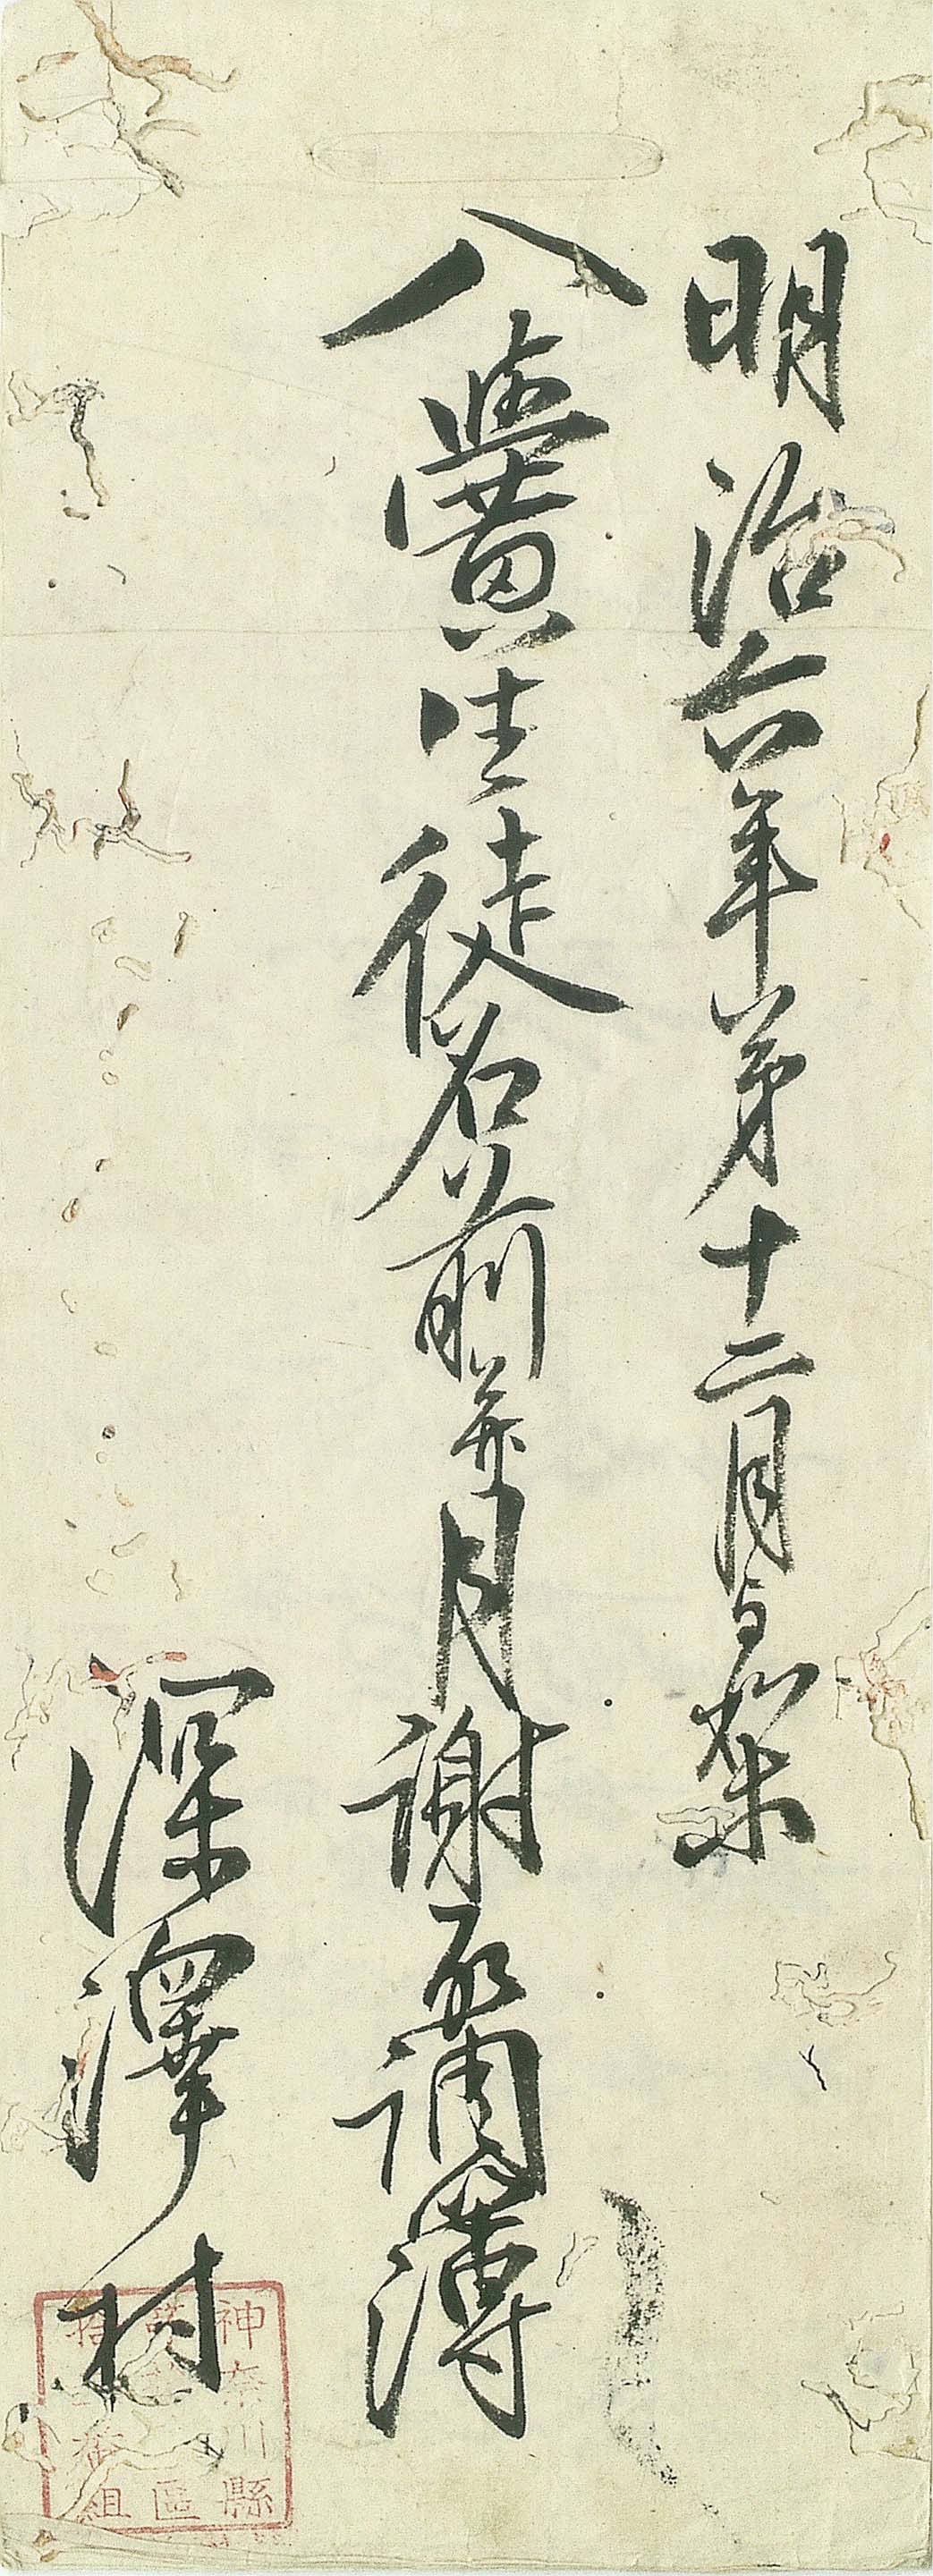 明治六年第十二月
八黌生徒名前并月謝取調簿
深澤村
神奈川縣
區
拾番組